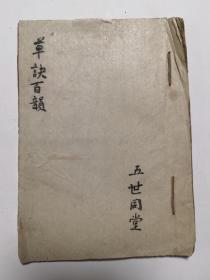 草訣百韻
五世同堂